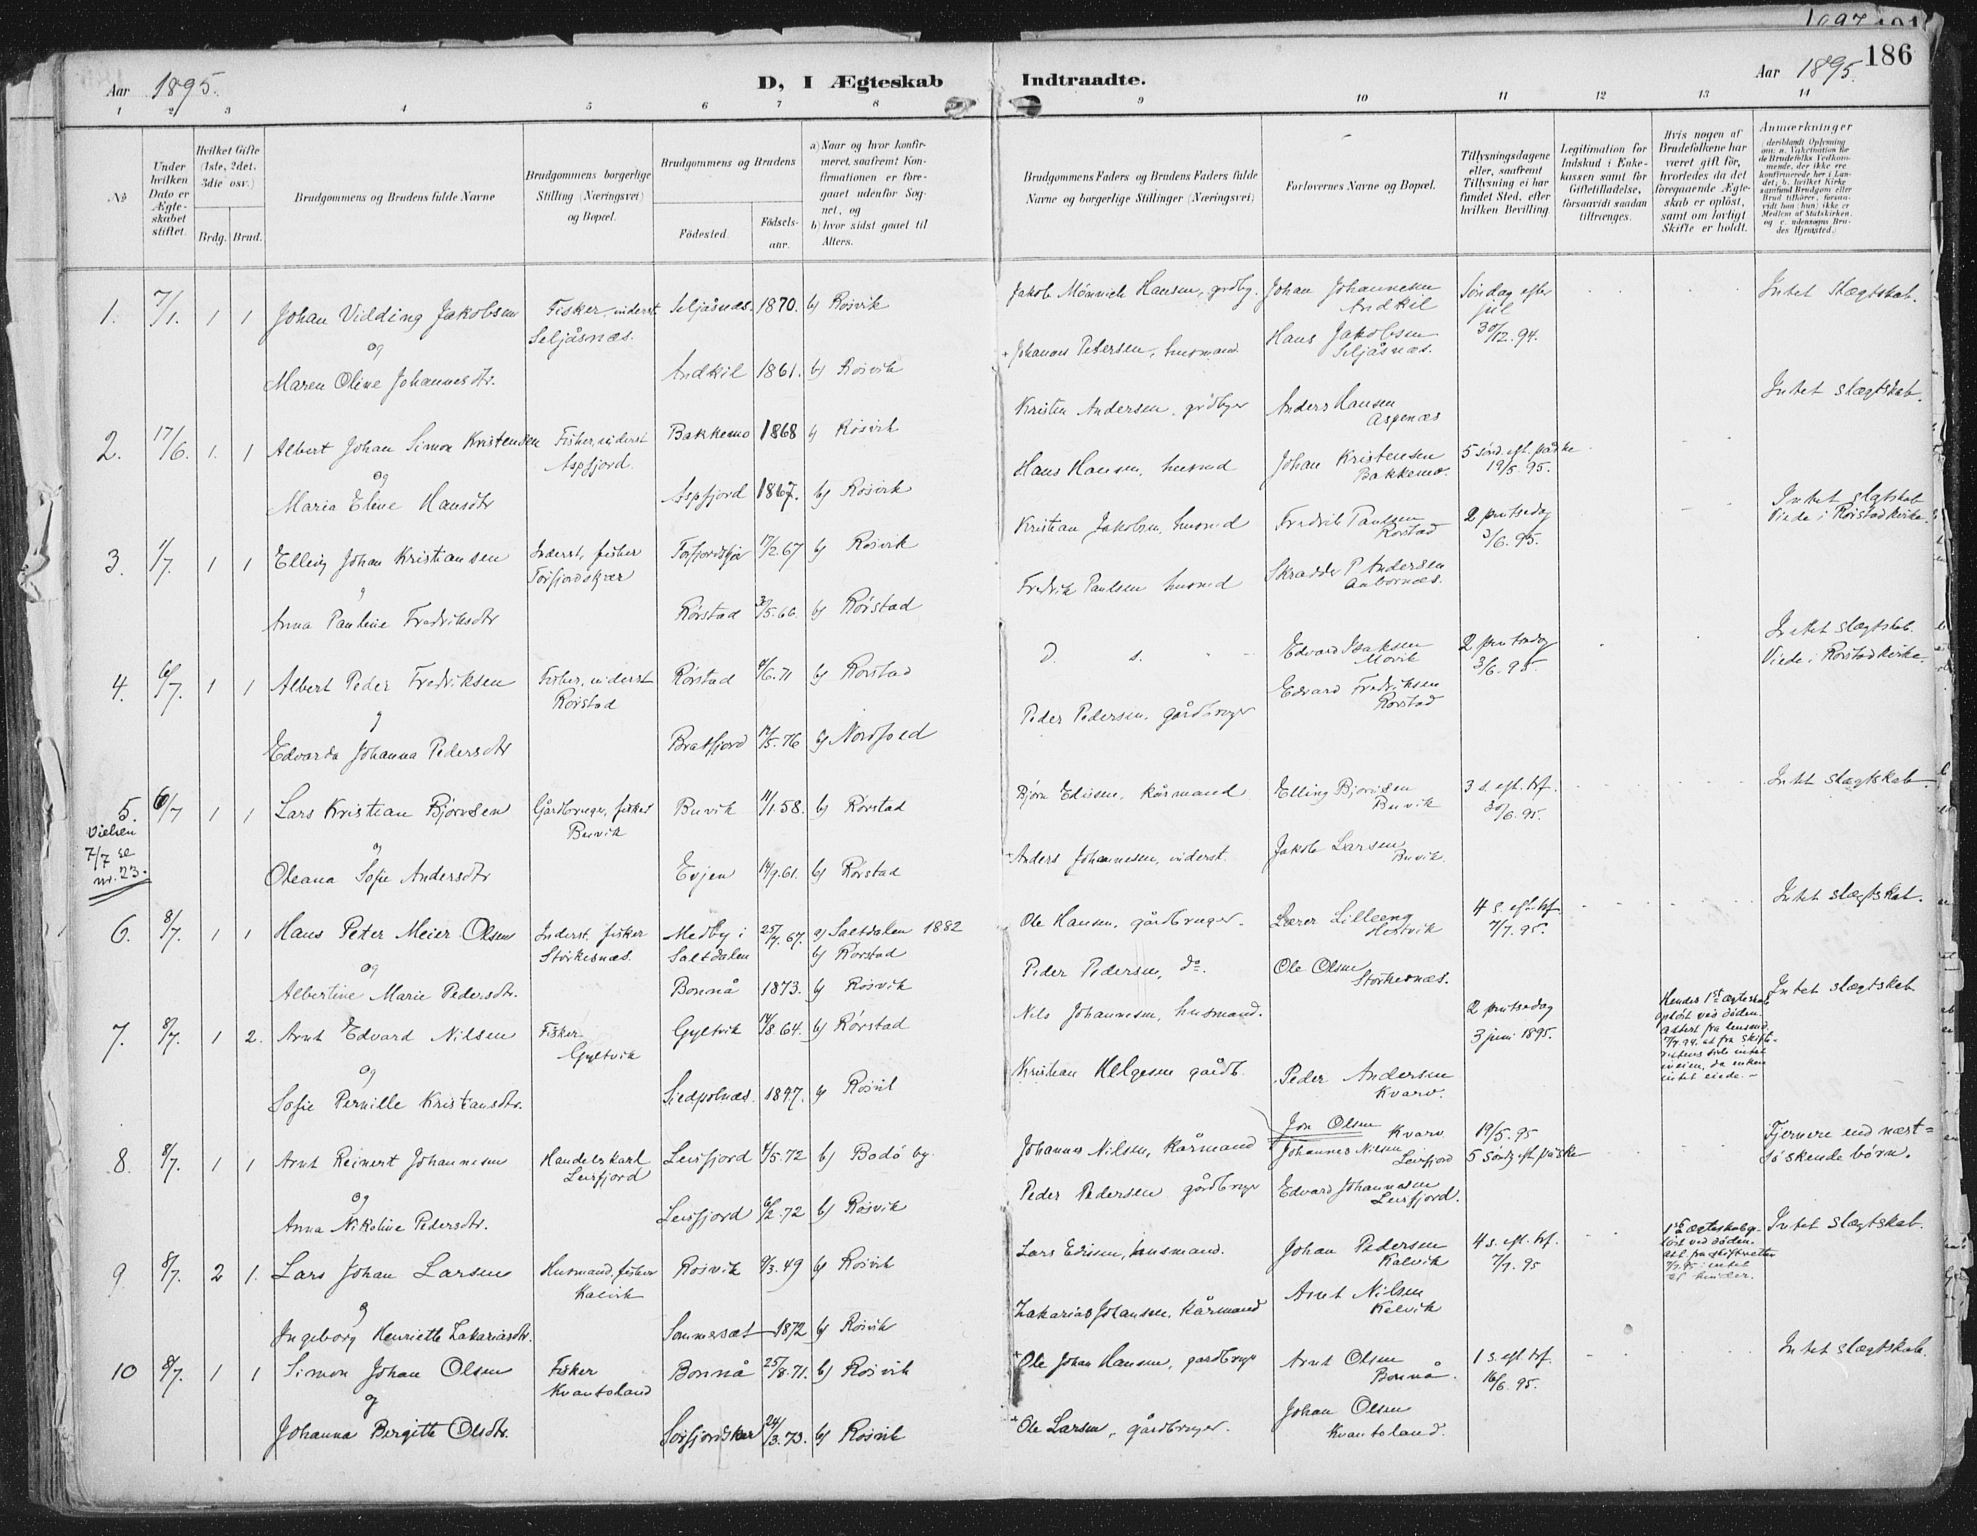 1897 191
186
Aar 1895. D, I Ægteskab Indtraadte. Aar 1895.
1 2 3 4 5 6 7 8 9 10 11 12 13 14
No
Under hvilken Dato er Ægteskabet stiftet.
Hvilket Gifte (1ste, 2det, 3die osv.)
Brdg. Brud.
Brudgommens og Brudens fulde Navne
Brudgommens borgerlige Stilling (Næringsvei) og Bopæl.
Brudgommens og Brudens
Fødested. Fødsels-aar.
a) Naar og hvor konfirmeret, saafremt Konfirmationen er foregaaet udenfor Sognet, og
b) hvor sidst gaaet til Alters.
Brudgommens Faders og Brudens Faders fulde Navne og borgerlige Stillinger (Næringsvei)
Forlovernes Navne og Bopæl.
Tillysningsdagene eller, saafremt Tillysning ei har fundet Sted, efter hvilken Bevilling.
Legitimation for Indskud i Enkekassen samt for Giftetilladelse, forsaavidt saadan tiltrænges.
Hvis nogen af Brudefolkene har været gift før, hvorledes da det foregaaende Ægteskab er opløst, samt om lovligt Skifte er holdt.
Anmærkninger
deriblandt Oplysning om: a. Vakcination for de Brudefolks Vedkommende, der ikke ere konfirmerede her i Landet; b. hvilket Kirkesamfund Brudgom eller Brud tilhører, forsaavidt han (hun) ikke er Medlem af Statskirken, og c. udensogns Brudes Hjemsted.)
1. 7/1. 1 1 Johan Vidding Jakobsen Fisker, inderst Seljåsnæs. 1870. b) Røsvik Jakob Mønnich Hansen, grdbg. Johan Johannesen Søndag efter Intet slægtskab.
Seljåsnæs. Andkil jul
og Hans Jakobsen 30/12.94.
Johannes Petersen, husmand. Seljåsnæs.
Maren Oline Johannesdtr. Andkil 1861. b) Røsvik
Kristen Andersen, grdbger Anders Hansen Intet slægtskab.
Aspenæs
2. 17/6. 1. 1 Albert Johan Simon Kristensen Fisker, inderst Bakkemo 1868 b) Røsvik
Aspfjord. Hans Hansen, husmd Johan Kristensen 5 sønd. eft. påske
og Bakkemo. 19/5 95.
Maria Eline Hansdtr Aspfjord 1867. b) Røsvik Intet slgtskab
Kristian Jakobsen, husmd Fredrik Paulsen 2 pintsedag Viede i Rørstad kirke.
Rørstad 3/6.95.
3. 1/7. 1 1 Elling Johan Kristiansen Inderst, fisker 17/2.67 b) Røsvik
Fredrik Paulsen husmd Skradder P Andersen
og
Anna Pauline Fredriksdtr Rørstad b) Rørstad Intet slægtskab.
D. s. Edvard Isaksen 2 pintsedag Viede i Rørstad kirke.
Movik 3/6.95.
4. 6/7. 1 1 Albert Peder Fredriksen Fisker, inderst Rørstad b) Rørstad
Rørstad Edvard Fredriksen
Rørstad
og Peder Pedersen, gårdbruger
Edvarda Johanna Pedersdtr Bratfjord 17/5.76 b) Nordfold
Intet slægtskab.
5. 6/7 1 1 Lars Kristian Bjørnsen Gårdbruger, fisker Buvik 11/1.58. b) Rørstad Bjørn Edissen, kårmand Elling Bjørnsen 3 s. eft. trf.
Vielsen Buvik Buvik 30/6.95.
7/7 se og Anders Johannesen, inderst. Jakob Larsen
nr. 23. Oleana Sofie Andersdtr Evjen 14/9.61. b) Rørstad Buvik.
Intet slægtskab.
6. 8/7. 1 1 Hans Peter Meier Olsen Inderst, fisker Medby i 25/7.67. a) Saltdalen 1882 Ole Hansen, gårdbruger. Lærer Lilleeng 4 s. eft. trf.
Storkesnæs. Saltdalen b) Rørstad Hestvik 7/7.95.
og Peder Pedersen, do. Ole Olsen
Albertine Marie Pedersdtr. Bonnå 1873. b) Røsvik Storkesnæs. Intet slægtskab
7. 8/7. 1 2. Arnt Edvard Nilsen Fisker Gyltvik 14/8 64. b) Rørstad Nils Johannesen, husmand. 2 pintsedag Hendes 1ste ægteskab
Gyltvik 3 juni 1895. opløst ved døden.
og Kristian Helgesen gårdb. Peder Andersen
Sofie Pernille Kristiansdtr. b) Røsvik Kvarv.
Jon Olsen Kvarv 19/5.95 Fjernere end næst=
8. 8/7. 1 1 Arnt Reinert Johannesen Handelskarl Leirfjord 4/5.72 b) Bodø by. Johannes Nilsen, kårmand Johannes Nilsen 5 sønd. eft. påske søskende børn.
Leirfjord Leirfjord
og Peder Pedersen gårdbruger Edvard Johannesen
Anna Nikoline Pedersdtr. Leirfjord 6/2.72 b) Røsvik Leirfjord.
Intet slægtskab.
9 8/7. 2 1. Lars Johan Larsen Husmand, fisker Røsvik 9/3.49 b) Røsvik Lars Edissen, husmand. Johan Pedersen 4 s. eft. trf.
Kalvik Kalvik 7/7.95
og Zakarias Johansen, kårmand Arnt Nilsen
Ingeborg Henriette Zakariasdtr. Sommerset 1872 b) Røsvik Kalvik
Intet slægtskab.
10 8/7. 1 1 Simon Johan Olsen Fisker Bonnå 25/8.71. b) Røsvik Ole Johan Hansen, gardbruger Arnt Olsen 1 s. eft. trf.
Kvantoland Bonnå. 16/6.95.
og Ole Larsen, gårdbruger. Johan Olsen
Johanna Bergitte Olsdtr. Sørfjordskar 24/3.73. b) Røsvik Kvantoland.